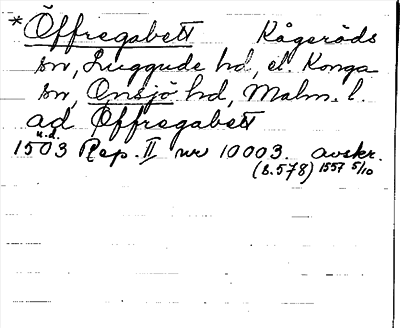 *Öffregabett Kågeröds
sn, Luggude hd, el. Konga
sn, Onsjö hd, Malm. l.
ad Øffregabett
u.d.
1503 Rep. II nr 10003. avskr.
(s.578) 1557 5/10